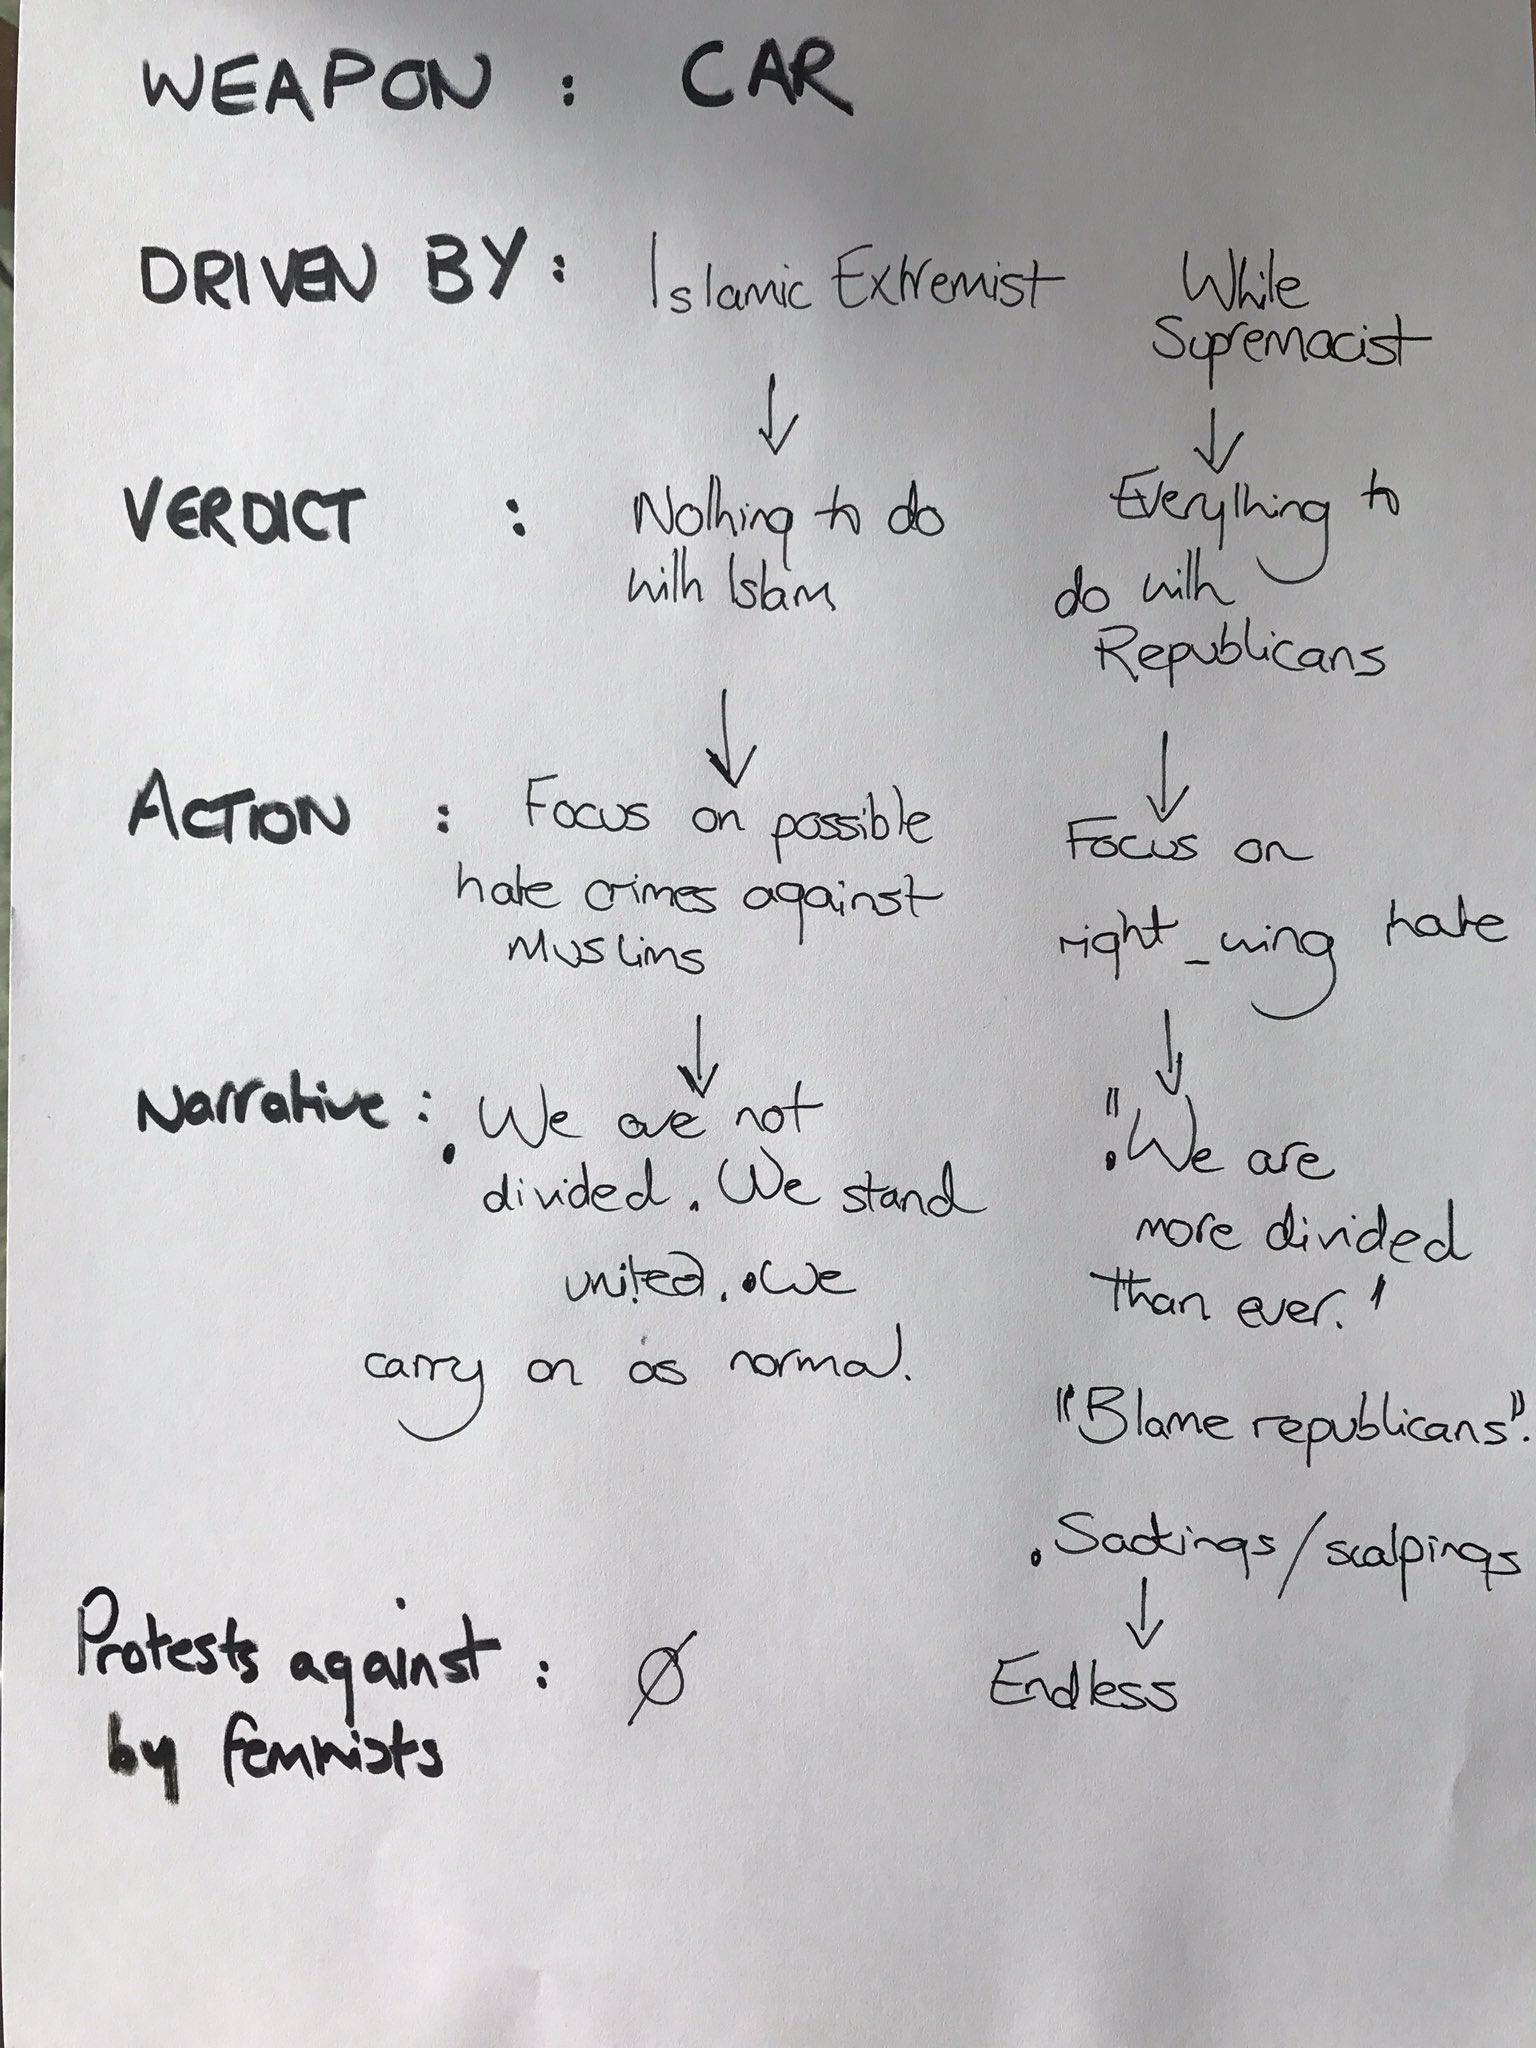 WEAPON : CAR
DRIVEN BY : Islamic Extremist
White
Supremacist
VERDICT : Nothing to do
with Islam
Everything to
do with
Republicans
ACTION : Focus on possible
hate crimes against
Muslims
Focus on
right-wing hate
Narrative : . We are not
divided. We stand
united. . We
carry on as normal.
". We are
more divided
than ever."
"Blame republicans".
. Sackings/scalpings
Protests against : Ø
by feminists
Endless